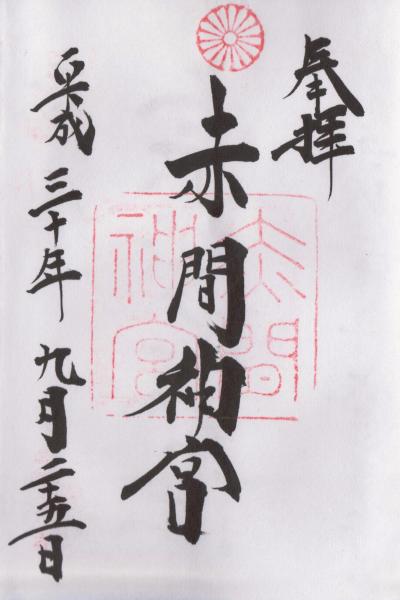 奉拝
赤間神宮
平成三十年九月二十五日
赤間
神宮